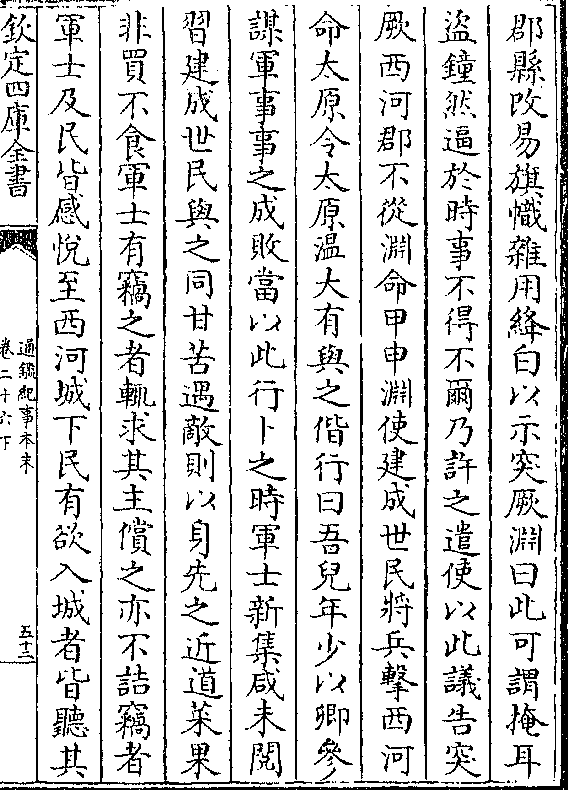 郡縣改易旗幟雜用絳白以示突厥淵曰此可謂掩耳
盜鐘然逼於時事不得不爾乃許之遣使以此議告突
厥西河郡不從淵命甲申淵使建成世民將兵擊西河
命太原令太原温大有與之偕行曰吾兒年少以卿參
謀軍事事之成敗當以此行卜之時軍士新集咸未閲
習建成世民與之同甘苦遇敵則以身先之近道菜果
非買不食軍士有竊之者輒求其主償之亦不詰竊者
軍士及民皆感悦至西河城下民有欲入城者皆聽其
欽定四庫全書
通鑑紀事本末
卷二十六下
五十三